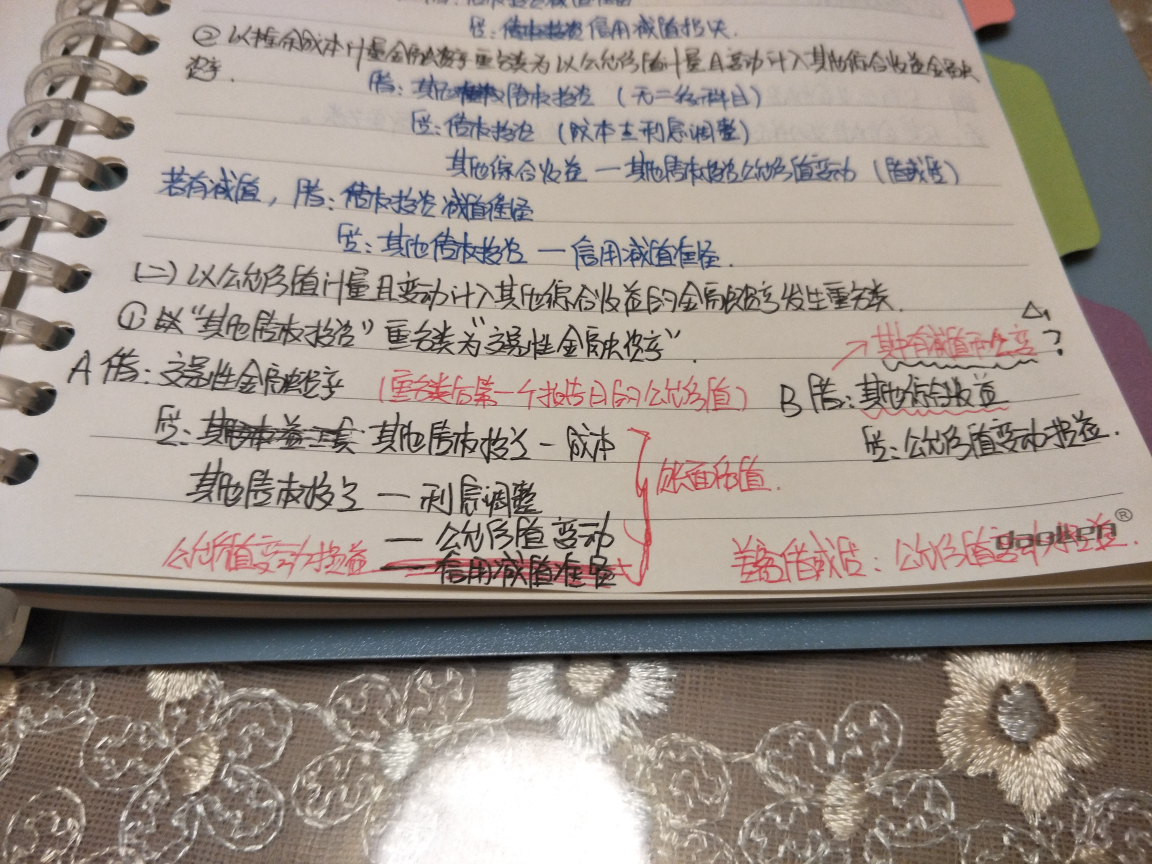 贷：债权投资 信用减值损失
② 以摊余成本计量金融资产重分类为以公允价值计量且变动计入其他综合收益金融
资产.
借：其他债权投资（无二级科目）
贷：债权投资（成本±利息调整）
其他综合收益 — 其他债权投资公允价值变动（借或贷）
若有减值，借：债权投资减值准备
贷：其他债权投资 — 信用减值准备.
(二) 以公允价值计量且变动计入其他综合收益的金融资产发生重分类.
① 以“其他债权投资”重分类为“交易性金融资产”.
△
其中有减值 ?
A 借：交易性金融资产（重分类后第一个报告日的公允价值） B 借：其他综合收益
贷：其他债权投资 — 成本 贷：公允价值变动损益.
其他债权投资 — 利息调整 账面价值.
— 公允价值变动
公允价值变动损益 — 信用减值准备 差额借或贷：公允价值变动损益.